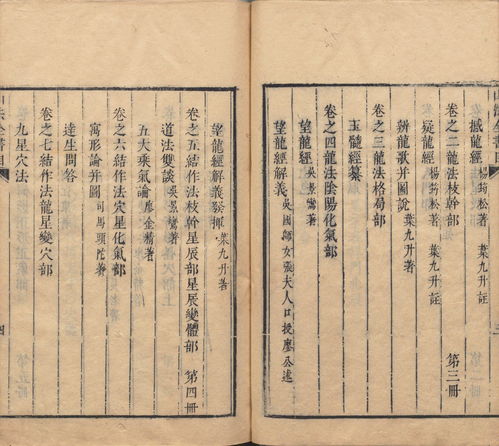 撼龍經 楊筠松著 葉九升註
卷之二龍法枝幹部 第三冊
疑龍經 楊筠松著 葉九升註
辨龍歌并圖說 葉九升著
卷之三龍法格局部
玉髓經纂
卷之四龍法陰陽化氣部
望龍經 吳景鸞著
望龍經解義 吳國師女張夫人口授廖公述
望龍經解義發揮 葉九升著
卷之五結作法枝幹星辰部星辰變體部 第四冊
道法雙談 吳景鸞著
五大乘氣論 廖金精著
卷之六結作法穴星化氣部
寓形論并圖 司馬頭陀著
達生問答
卷之七結作法龍星變穴部
九星穴法
山法全書目
四